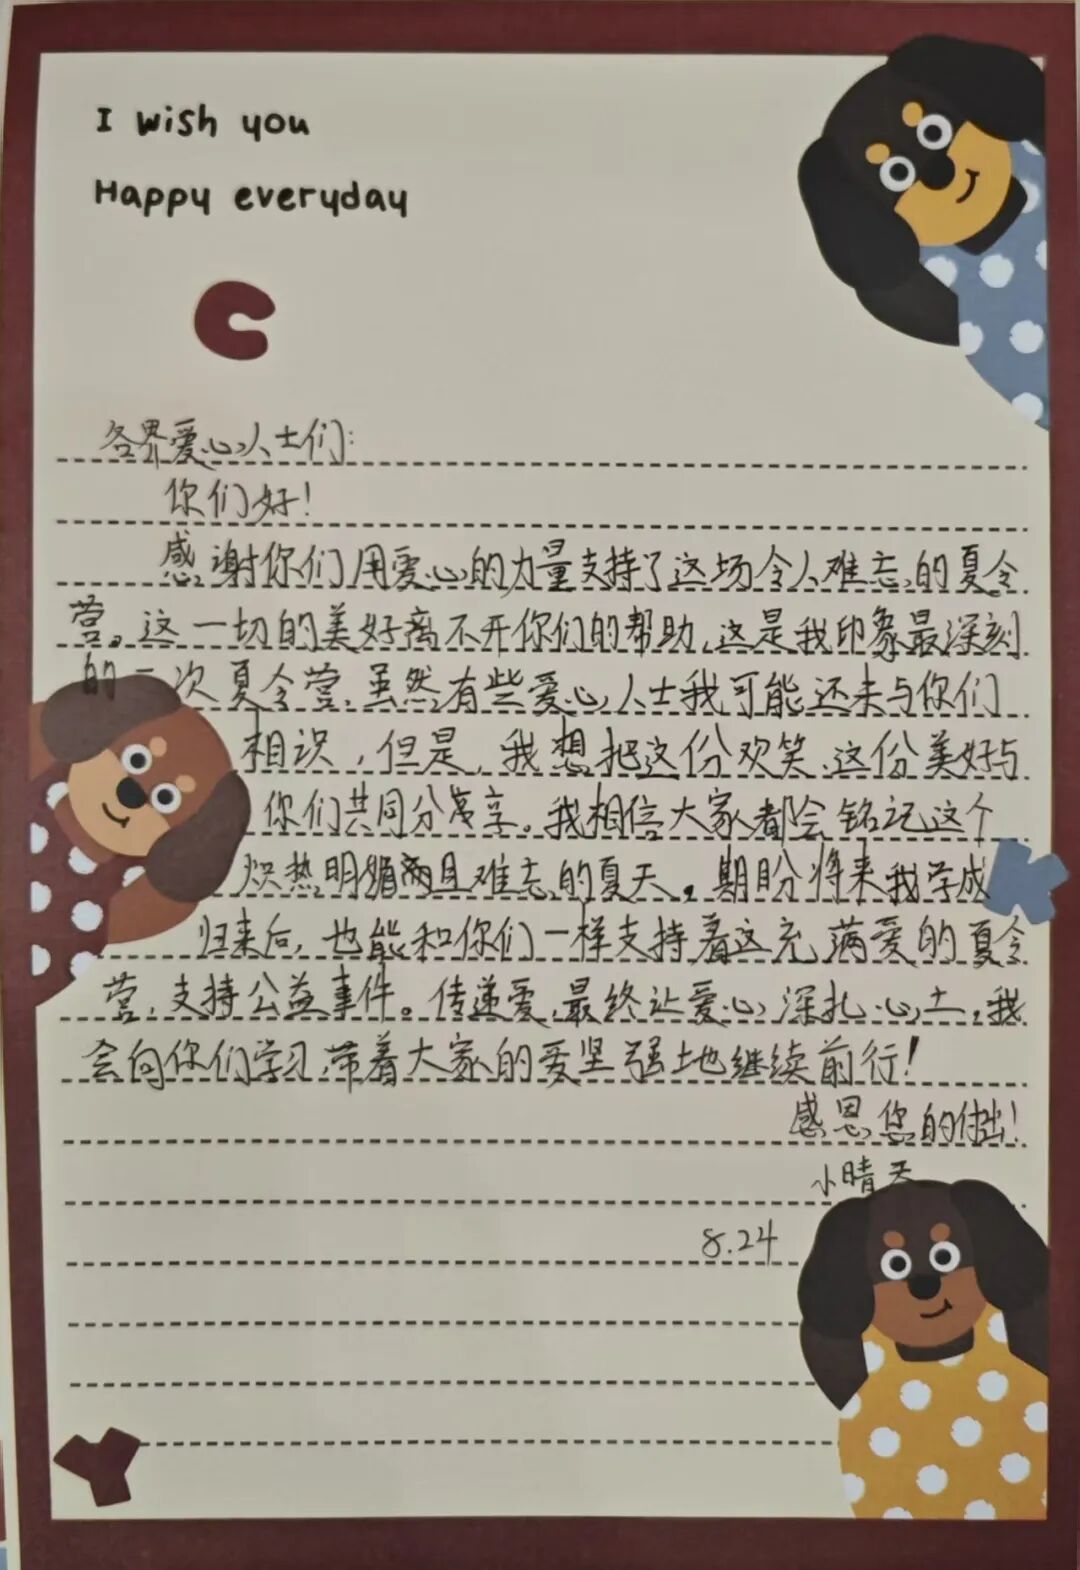 I wish you
Happy everyday
各界爱心人士们:
你们好!
感谢你们用爱心的力量支持了这场令人难忘的夏令
营。这一切的美好离不开你们的帮助,这是我印象最深刻
的一次夏令营,虽然有些爱心人士我可能还未与你们
相识,但是,我想把这份欢笑、这份美好与
你们共同分享。我相信大家都会铭记这个
炽热明媚而且难忘的夏天。期盼将来我学成
归来后,也能和你们一样支持着这充满爱的夏令
营,支持公益事件。传递爱,最终让爱心深扎心土,我
会向你们学习,带着大家的爱坚强地继续前行!
感恩您的付出!
小晴天
8.24